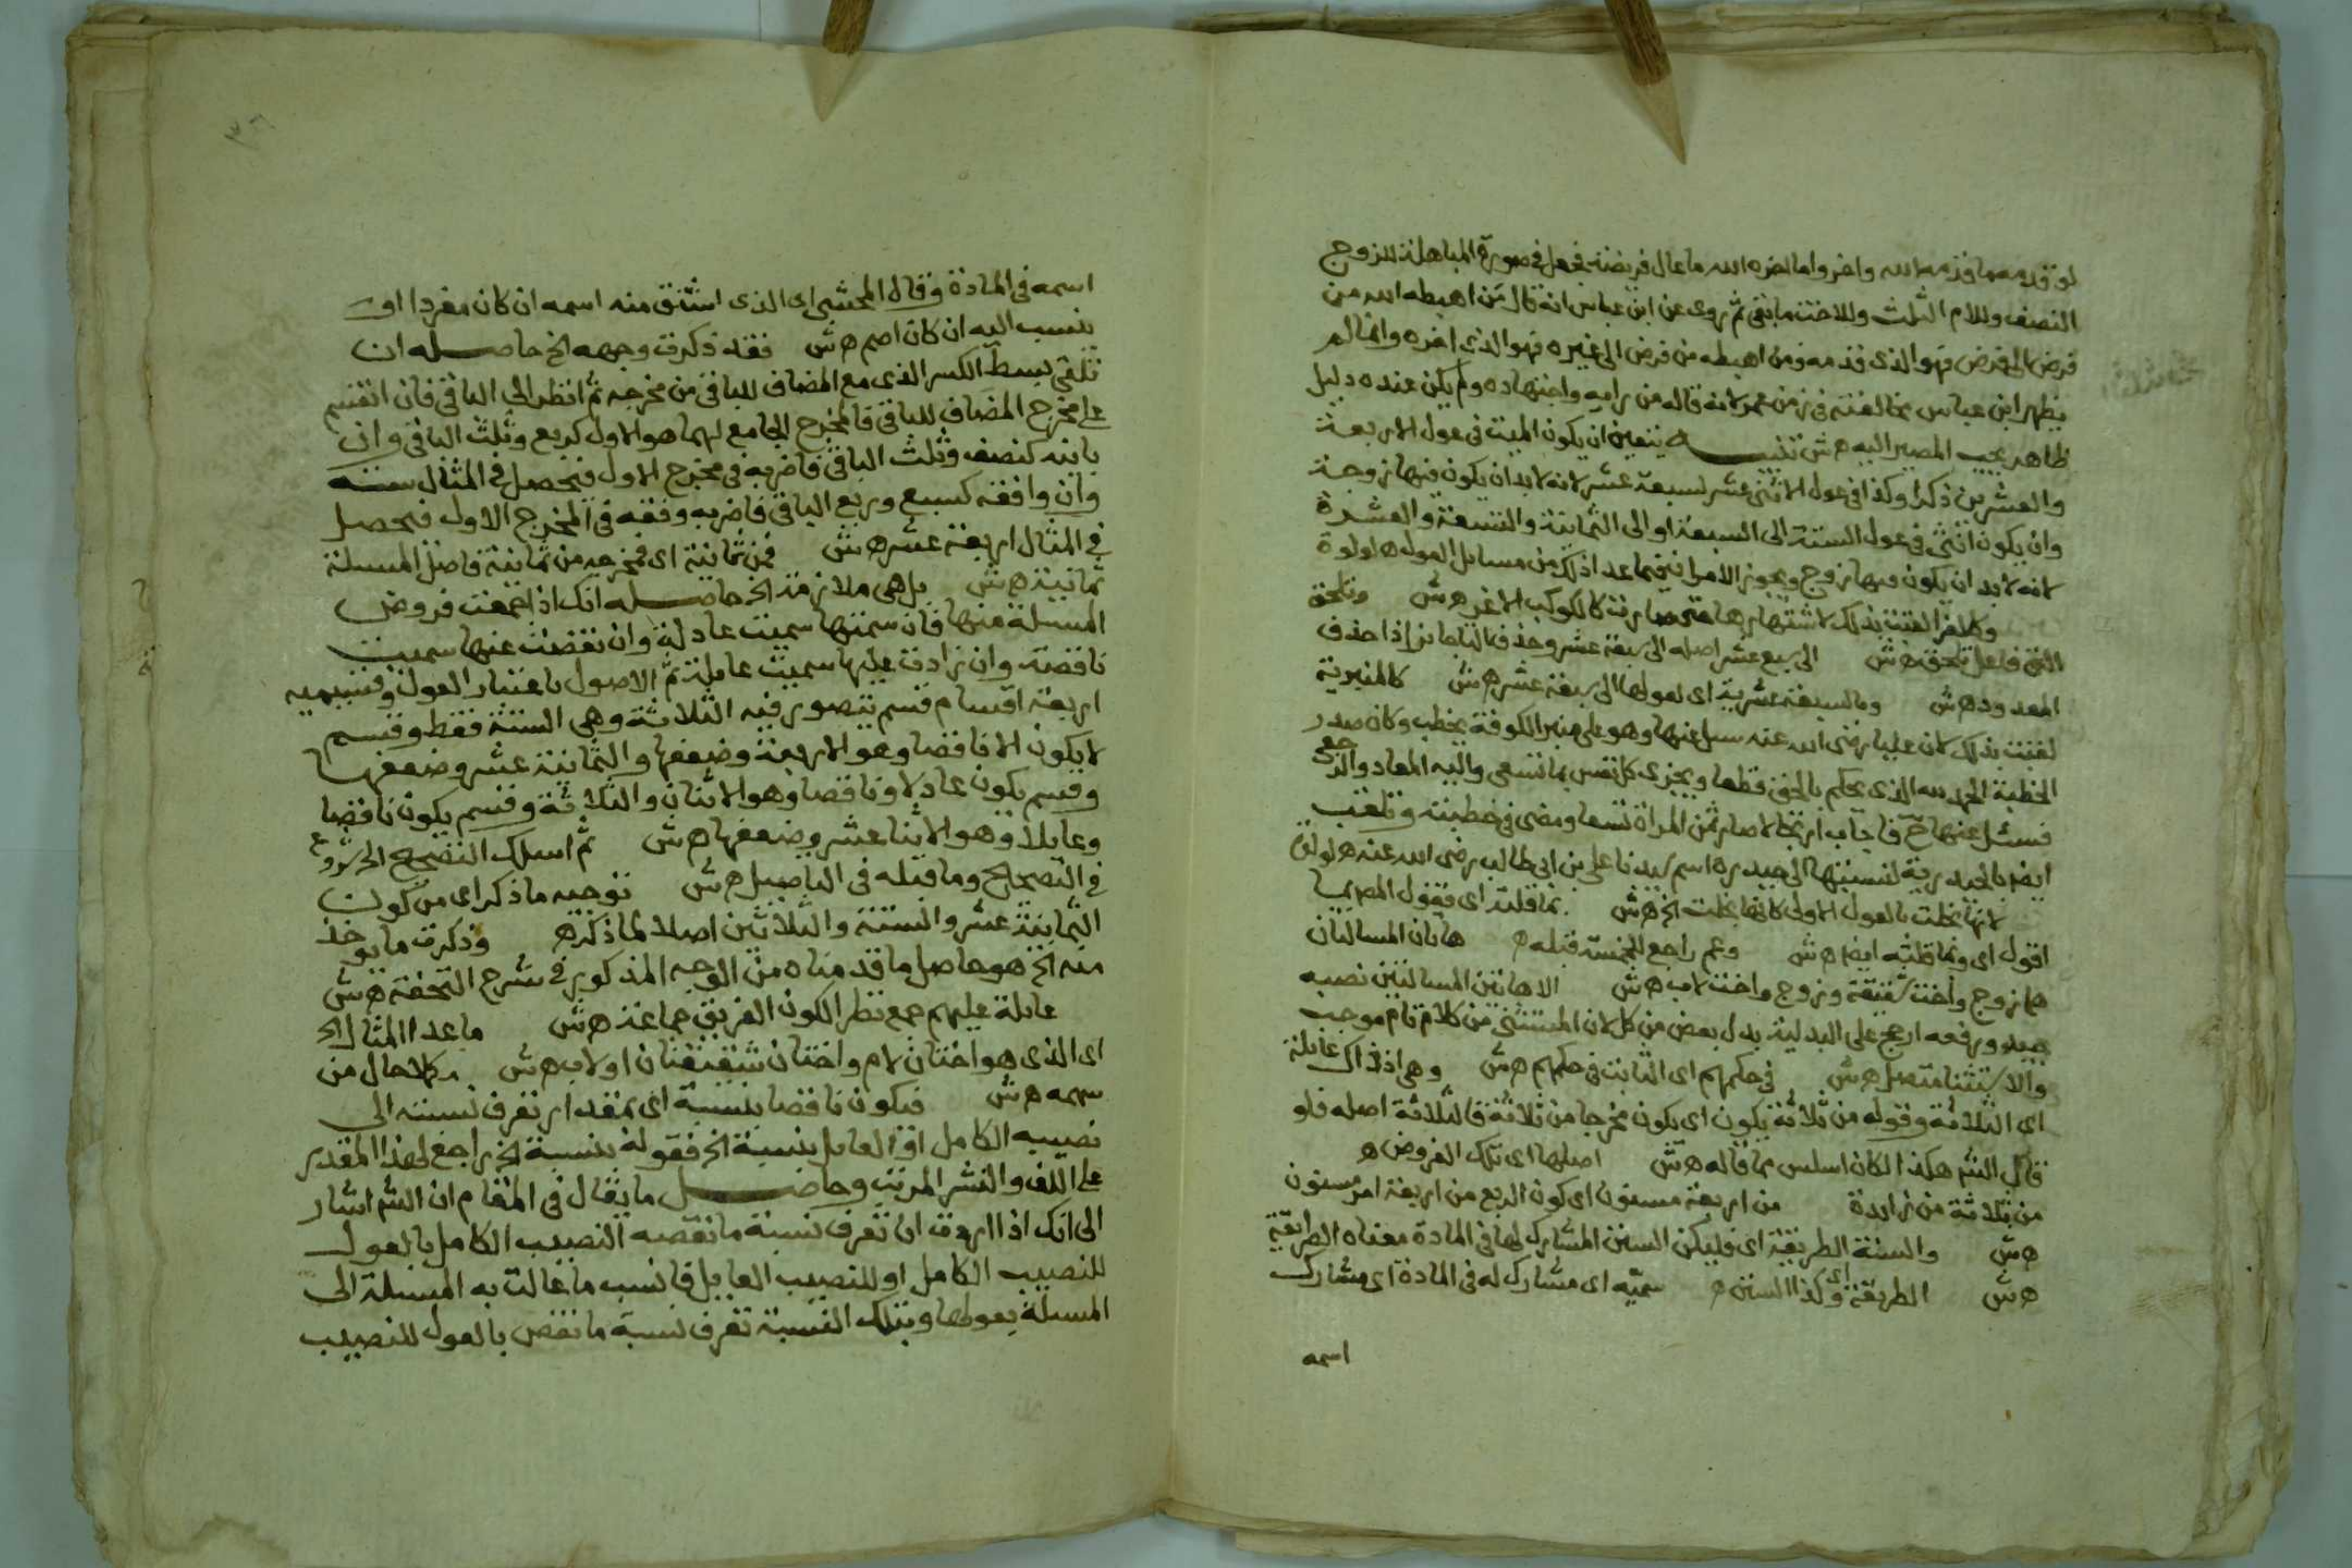 لو قدموا ما قدمه الله واخروا ما اخره الله ما عال فريضة فجعل في صورة المباهلة للزوج
النصف وللام الثلث وللاخت ما بقى ثم روى عن ابن عباس انه قال من اهبطه الله من
فرض الى فرض فهو الذى قدمه ومن اهبطه من فرض الى غيره فهو الذى اخره وانما لم
يظهر ابن عباس مخالفته فى زمن عمر لانه قاله من رايه واجتهاده ولم يكن عنده دليل
ظاهر يجب المصير اليه ه ش تنبيه يتعين ان يكون الميت فى عول الاربعة
والعشرين ذكرا وكذا فى عول الاثنى عشر لسبعة عشر لانه لابد ان يكون فيها زوجة
وان يكون انثى فى عول الستة الى السبعة او الى الثمانية والتسعة والعشرة
لانه لابد ان يكون فيها زوج ويجوز الامران فيما عدا ذلك من مسايل العول ه لولوة
وكالغرا لقبت بذلك لاشتهارها حتى صارت كالكوكب الاغر ه ش وتلحق
التى فاعل تلحق ه ش الى سبع عشر اصله الى سبعة عشر وحذف التا جايز اذا حذف
المعدود ه ش وبالسبعة عشرية اى لعولها الى سبعة عشر ه ش كالمنبرية
لقبت بذلك لان عليا رضى الله عنه سيل عنها وهو على منبر الكوفة يخطب وكان صدر
الخطبة الحمد لله الذى يحكم بالحق قطعا ويجزى كل نفس بما تسعى واليه المعاد والرجعى
فسئل عنها ح فاجاب ارتجالا صار ثمن المراة تسعا ومضى فى خطبته وتلقب
ايضا بالحيدرية لنسبتها الى حيدره اسم سيدنا على بن ابى طالب رضى الله عنه ه لولوة
لانها بخلت بالعول الاولى كانها بخلت الخ ه ش بما قلته اى بقول المص بما
اقول اى وبما قلته ايضا ه ش وعم راجع للخمسة قبله ه هاتان المسالتان
هما زوج واخت شقيقة وزوج واخت لاب ه ش الا هاتين المسالتين نصبه
جيد ورفعه ارجح على البدلية بدل بعض من كل لان المستثنى من كلام تام موجب
والاستثنا متصل ه ش فى حكمهم اى الثابت فى حكمهم ه ش وهى اذ ذاك عايلة
اى الثلاثة وقوله من ثلاثة يكون اى يكون مخرجا من ثلاثة فالثلاثة اصله فلو
قال الش هكذا لكان اسلس مما قاله ه ش اصلها اى تلك الفروض ه
من ثلاثة من زايدة من اربعة مسنون اى كون الربع من اربعة امر مسنون
ه ش والسنة الطريقة اى فليكن السنن المشارك لها فى المادة معناه الطرايقة
ه ش الطريقة اى وكذا السنن ه سميّه اى مشارك له فى المادة اى مشارك
اسمه
اسمه فى المادة وقال المحشى اى الذى اشتق منه اسمه ان كان مفردا او
ينسب اليه ان كان اصم ه ش فقد ذكرت وجهه الخ حاصله ان
تلقى بسط الكسر الذى مع المضاف للباقى من مخرجه ثم انظر الى الباقى فان انقسم
على مخرج المضاف للباقى فالمخرج الجامع لهما هو الاول كربع وثلث الباقى وان
باينه كنصف وثلث الباقى فاضربه فى مخرج الاول فيحصل فى المثال ستة
وان وافقه كسبع وربع الباقى فاضربه وفقه فى المخرج الاول فيحصل
فى المثال اربعة عشر ه ش فمن ثمانية اى فمخرجه من ثمانية فاصل المسيلة
ثمانية ه ش بل هى ملازمة الخ حاصله انك اذا جمعت فروض
المسيلة منها فان سمتها سميت عادلة وان نقصت عنها سميت
ناقصة وان زادت عليها سميت عايلة ثم الاصول باعتبار العول وقسيميه
اربعة اقسام قسم يتصور فيه الثلاثة وهى الستة فقط وقسم
لا يكون الا ناقصا وهو الاربعة وضعفها والثمانية عشر وضعفها
وقسم يكون عادلا وناقصا وهو الاثنان والثلاثة وقسم يكون ناقصا
وعايلا وهو الاثنا عشر وضعفها ه ش ثم اسلك التصحيح الخ شروع
فى التصحيح وما قبله فى التاصيل ه ش توجيه ما ذكر اى من كون
الثمانية عشر والستة والثلاثين اصلا لما ذكر ه وذكرت ما يوخذ
منه الخ هو حاصل ما قدمناه من الوجه المذكور فى شرح التحفة ه ش
عايلة عليهم جمع نظرا لكون الفريق جماعة ه ش ما عدا المثال الخ
اى الذى هو اختان لام واختان شقيقتان او لاب ه ش بكل حال من
سهمه ه ش فيكون ناقصا بنسبة اى بمقدار تعرف نسبته الى
نصيبه الكامل او العايل بنسبة الخ فقوله بنسبة الخ راجع لهذا المقدر
على اللف والنشر المرتب وحاصل ما يقال فى المقام ان الش اشار
الى انك اذا اردت ان تعرف نسبة ما نقصه النصيب الكامل بالعول
للنصيب الكامل او للنصيب العايل فانسب ما عالت به المسيلة الى
المسيلة بعولها وبتلك النسبة تعرف نسبة ما نقص بالعول للنصيب